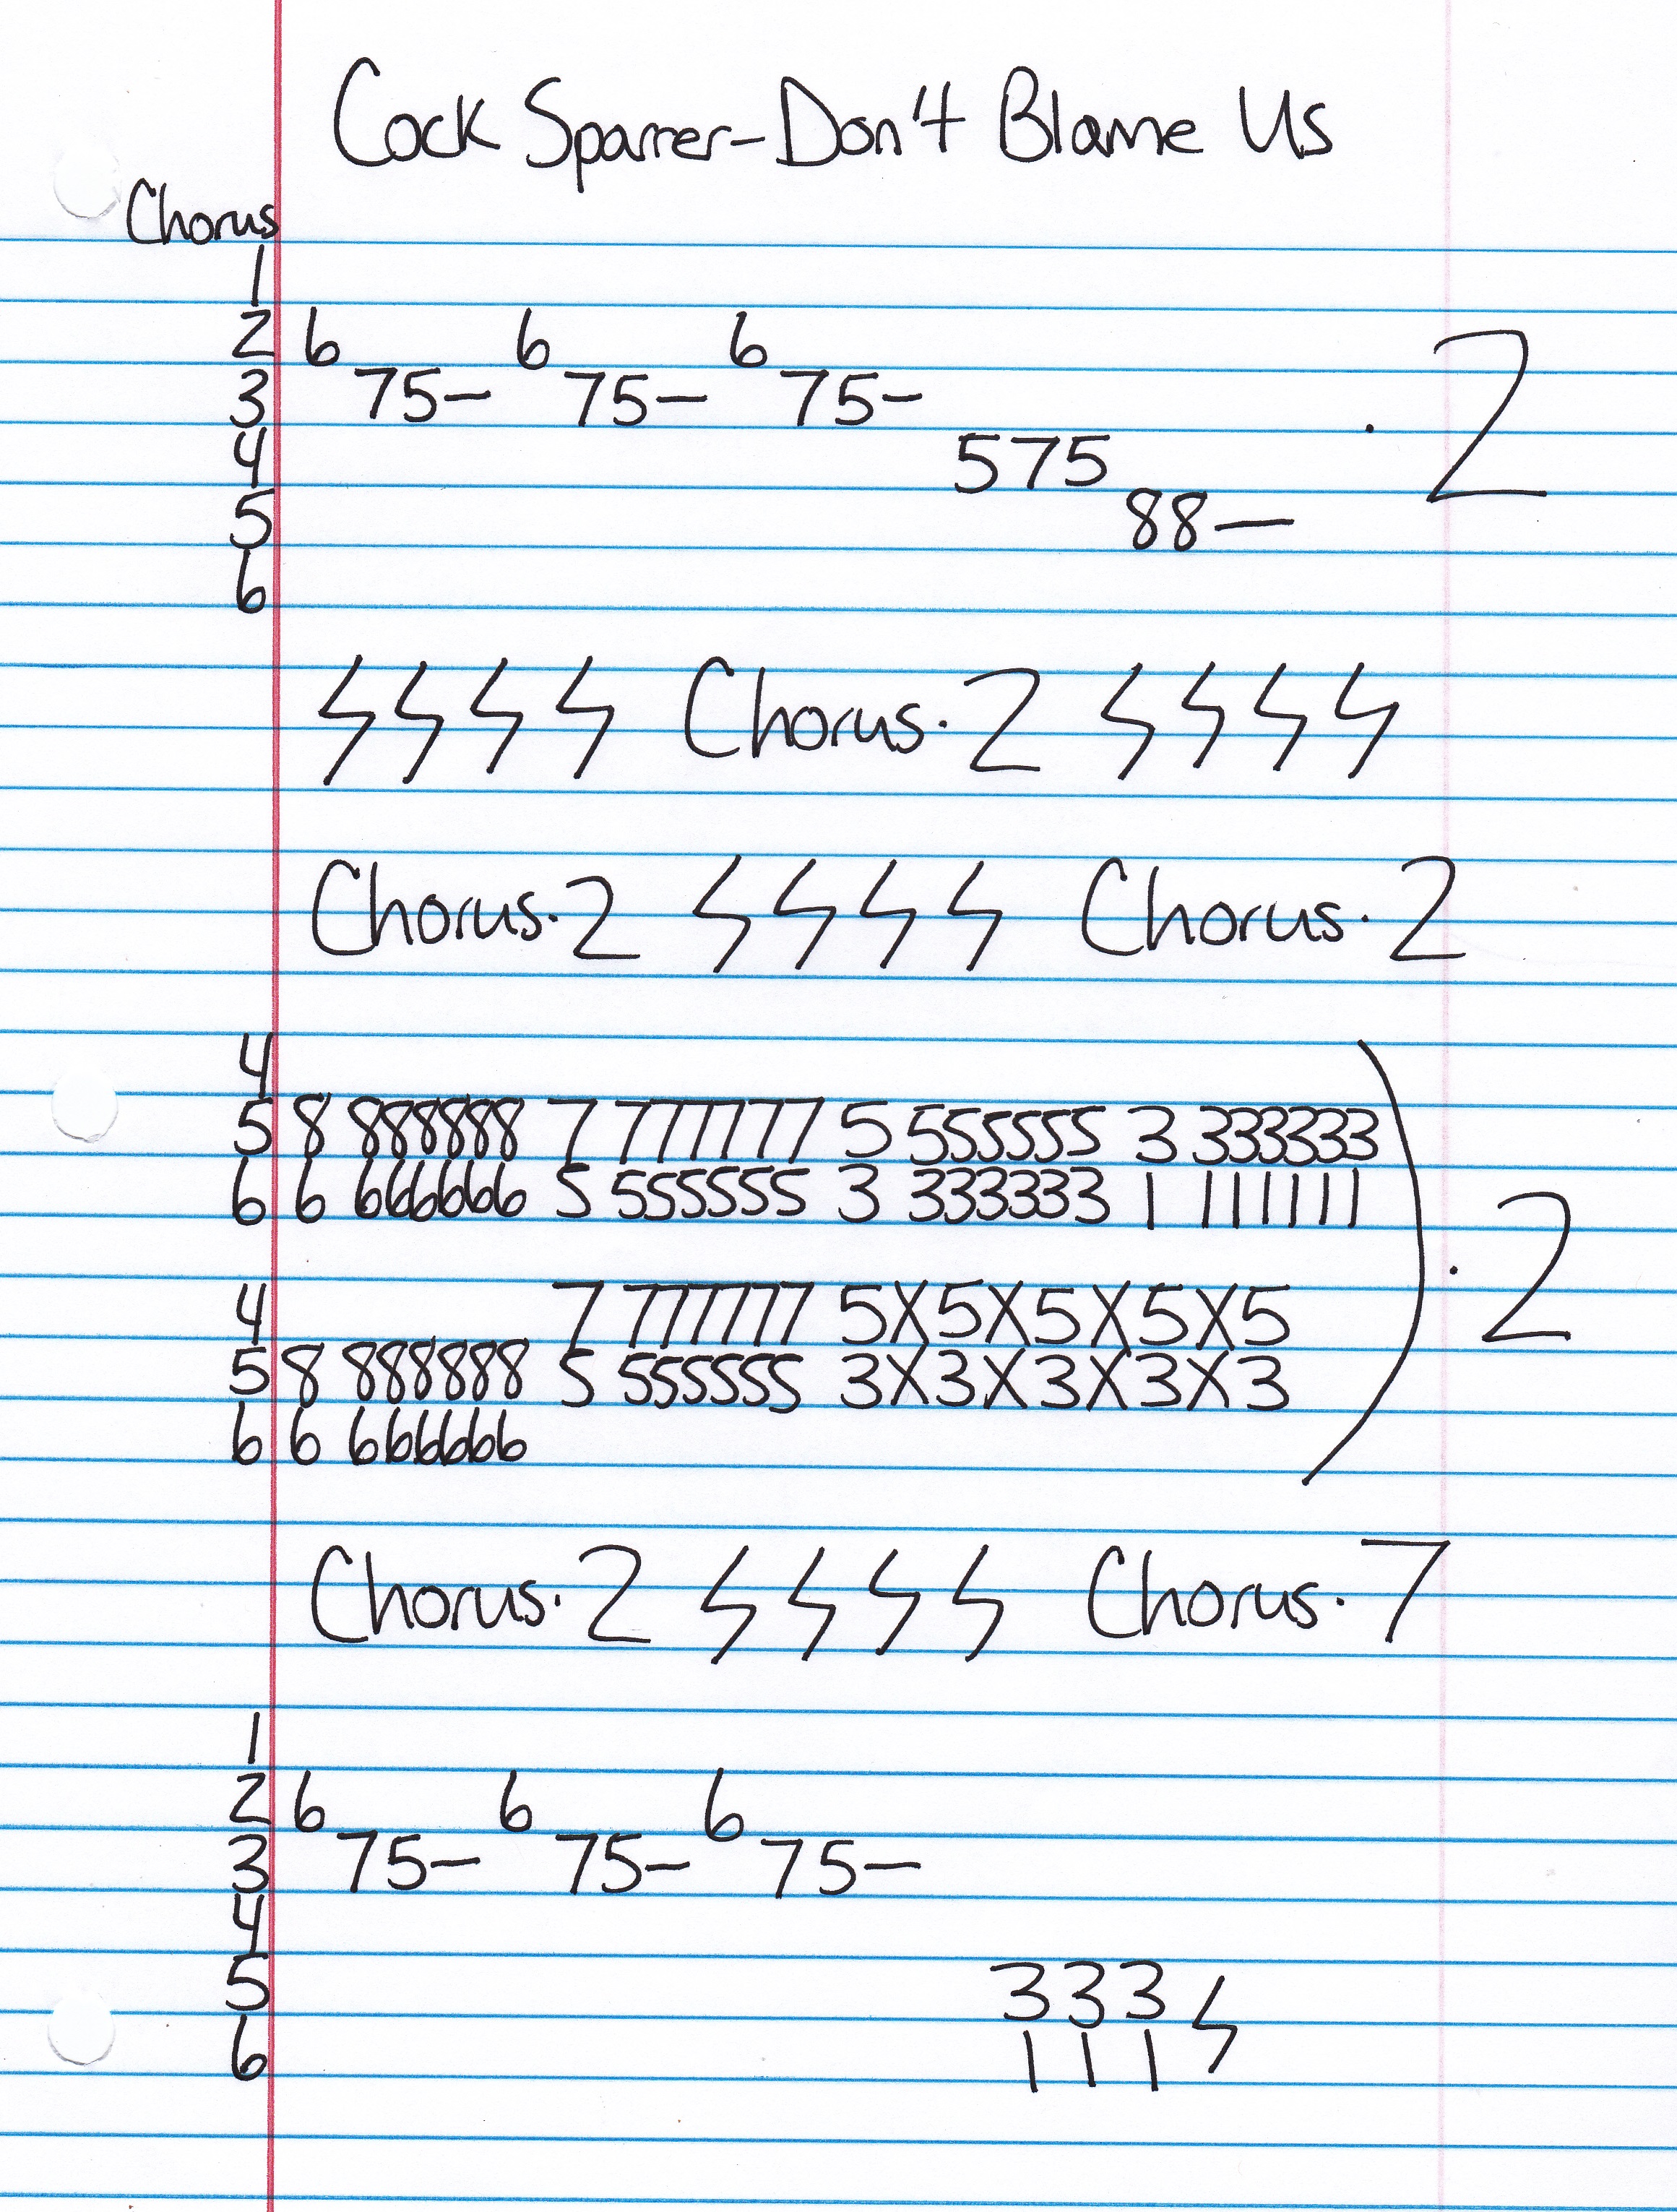 Cock Sparrer-Don't Blame Us
Chorus
1
2 6 6 6
3 75— 75— 75—
4 575
5 88—
6
· 2
ϟ ϟ ϟ ϟ Chorus·2 ϟ ϟ ϟ ϟ
Chorus·2 ϟ ϟ ϟ ϟ Chorus·2
4
5 8 888888 7 777777 5 555555 3 333333
6 6 666666 5 555555 3 333333 1 111111
4 7 777777 5X5X5X5X5
5 8 888888 5 555555 3X3X3X3X3
6 6 666666
) · 2
Chorus·2 ϟ ϟ ϟ ϟ Chorus·7
1
2 6 6 6
3 75— 75— 75—
4
5 333 ϟ
6 111